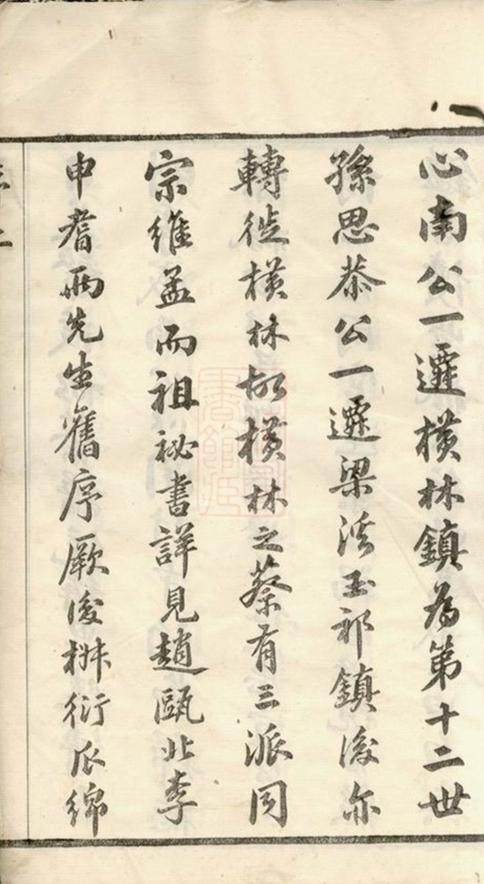 心南公一遷橫林鎮爲第十二世
孫思恭公一遷梁溪玉祁鎮後亦
轉徙橫林故橫林之蔡有三派同
宗維孟而祖祕書詳見趙甌北李
申耆兩先生舊序厥後椒衍瓜綿